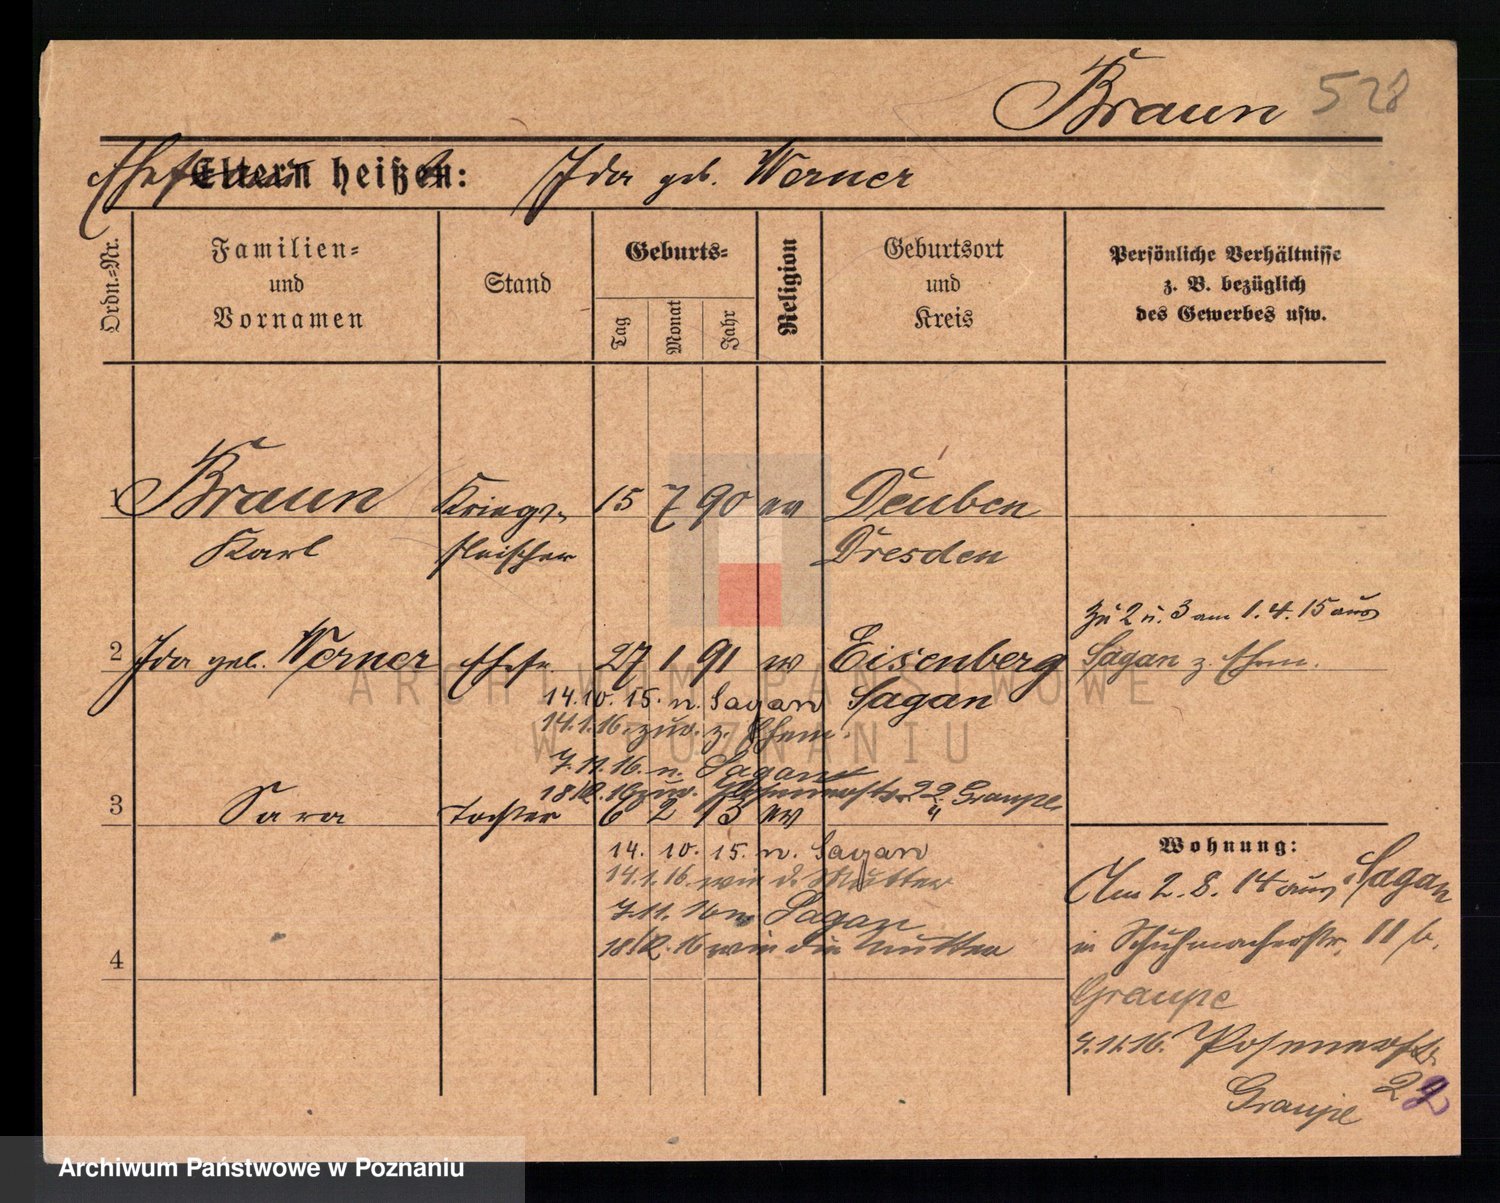 Braun 528
Eltern heißen: Ida geb. Werner
Ordn.-Nr.
Familien-
und
Vornamen
Stand
Geburts-
Tag
Monat
Jahr
Religion
Geburtsort
und
Kreis
Persönliche Verhältnisse
z. B. bezüglich
des Gewerbes usw.
1 Braun Kriegs- 15 7 90 ev Deuben
Karl fleischer Dresden
zu 2 u. 3 am 1.4.15 aus
2 Ida geb. Werner Ehefr. 27 1 91 ev Eisenberg Sagan z. Ehem.
14.10.15. n. Sagan Sagan
14.1.16. zur. z. Ehem.
7.11.16. n. Sagan
18.12.16 zur. Posenerstr. 22 Graupe
3 Sara Tochter 6 2 13 ev
14. 10. 15. n. Sagan
14.1.16. wie d. Mutter
7.11.16 n. Sagan
18.12.16 wie die Mutter
4
Wohnung:
Am 2.8.14 aus Sagan
in Schuhmacherstr. 11 b.
Graupe
9.11.16. Posenerstr.
22
Graupe
ARCHIWUM PAŃSTWOWE
W POZNANIU
Archiwum Państwowe w Poznaniu